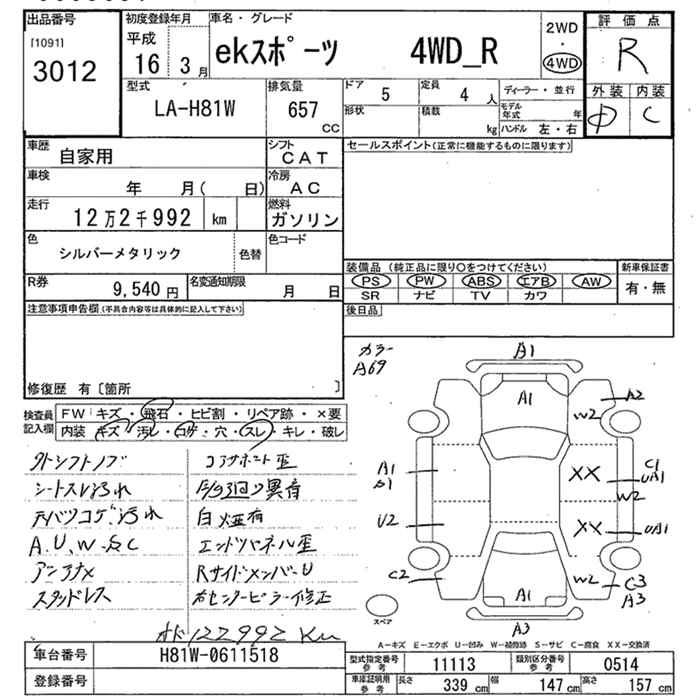 出品番号
[1091]
3012
初度登録年月
平成
16 3月
車名・グレード
ekスポーツ 4WD_R
2WD
・
4WD
評価点
R
外装 内装
C
型式
LA-H81W
排気量
657
cc
ドア 5
定員 4 人
形状
積載 kg
ディーラー・並行
モデル年式 年
ハンドル 左・右
車歴 自家用
シフト CAT
車検 年 月( 日)
冷房 AC
走行 12万2千992 km
燃料 ガソリン
色 シルバーメタリック 色替
色コード
R券 9,540 円
名変通知期限 月 日
セールスポイント(正常に機能するものに限ります)
装備品(純正品に限り〇をつけてください) 新車保証書
PS PW ABS エアB AW 有・無
SR ナビ TV カワ
後日品
注意事項申告欄(不具合内容等は具体的に記入して下さい)
修復歴 有〔箇所 〕
検査員記入欄
FW キズ・飛石・ヒビ割・リペア跡・×要
内装 キズ・汚レ・コゲ・穴・スレ・キレ・破レ
外シフトノブ
シートスレ汚れ
汚れ
A.U.W-多C
アンテナ×
スタッドレス
コアサポート歪
異音
白煙有
エンドパネル歪
RサイドメンバーU
右センターピラー修正
オド122992Km
カラー
A69
A1
A1
A2
W2
A1
XX
C1
UA1
W2
U2
XX
UA1
C2
W2
C3
A3
A1
A3
スペア
A-キズ E-エクボ U-凹み W-補修跡 S-サビ C-腐食 XX-交換済
車台番号 H81W-0611518
登録番号
型式指定番号 参考 11113
類別区分番号 参考 0514
車庫証明用 参考 長さ 339 cm 幅 147 cm 高さ 157 cm